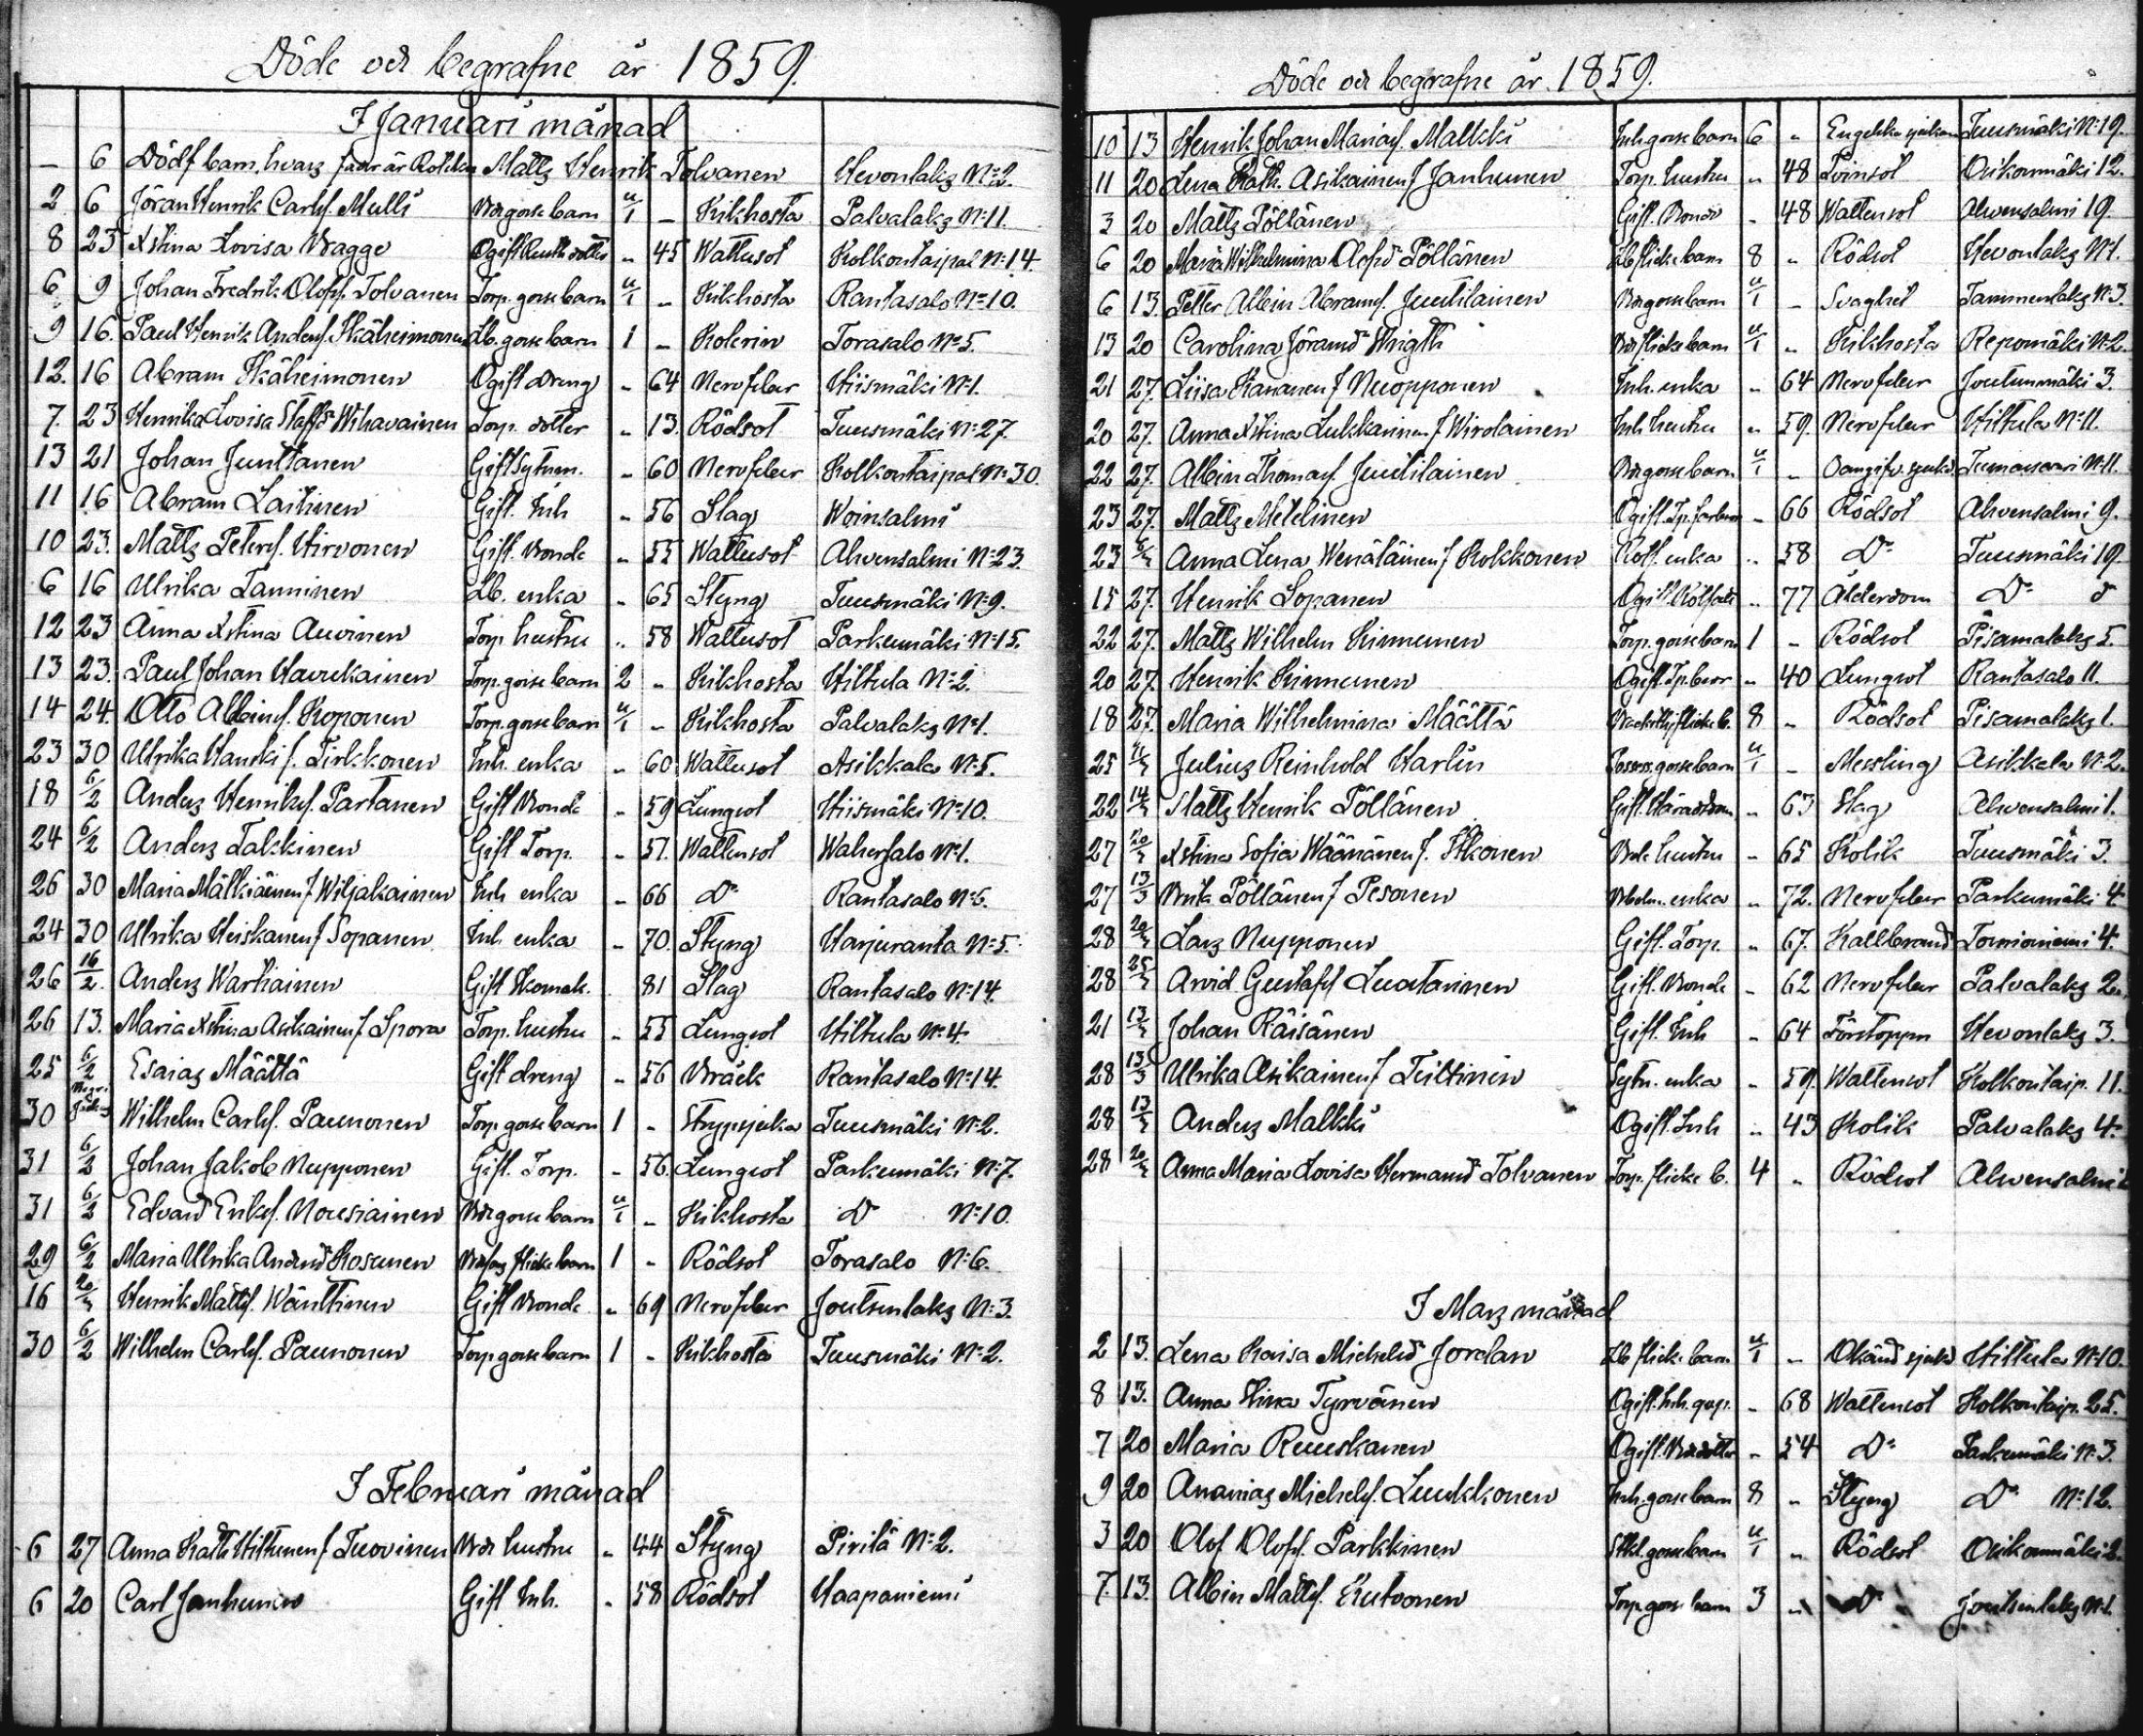 Döde och begrafne år 1859.
I Januari månad
— 6 Dödf. barn, hvars fader är Mattz Henrik Tolvanen Hevonlakz N:2.
2 6 Jöran Henrik Carlss. Mulli Bde gosse barn u/1 – Kikhosta Palvalakz N:11.
8 23 Xstina Lovisa Bragge Ogift dotter „ 45 Wattusot Kolkontaipal N:14
6 9 Johan Fredrik Olofss. Tolvanen Torp. gosse barn u/1 – Kikhosta Rantasalo N:10.
9 16. Paul Henrik Anderss. Ikäheimonen Lb. gosse barn 1 – Kolerin Torasalo N:5.
12. 16 Abram Ikäheimonen Ogift dreng „ 64 Nervfeber Hiismäki N:1.
7. 23 Henrika Lovisa Staffsd. Wihavainen Torp. dotter „ 13. Rödsot Tuusmäki N:27.
13 21 Johan Junttanen Gift Sytnm. „ 60 Nervfeber Kolkontaipal N:30.
11 16 Abram Laitinen Gift. Inh „ 56 Slag Woinsalmi
10 23. Mattz Peterss. Hirvonen Gift. Bonde „ 55 Wattusot Ahvensalmi N:23.
6 16 Ulrika Tanninen Lb. enka „ 65 Styng Tuusmäki N:9.
12 23 Anna Xstina Auvinen Torp. hustru „ 58 Wattusot Parkumäki N:15.
13 23. Paul Johan Haverkainen Torp. gosse barn 2 „ Kikhosta Hiltula N:2.
14 24. Otto Albinss. Koponen Torp. gosse barn u/1 – Kikhosta Palvalakz N:1.
23 30 Ulrika Hanski f. Tirkkonen Inh. enka „ 60. Wattusot Asikkala N:5.
18 6/2 Anderz Henrikss. Partanen Gift Bonde „ 59 Lungsot Hiismäki N:10.
24 6/2 Anderz Takkinen Gift Torp. „ 57. Wattensot Wahersalo N:1.
26 30 Maria Mälkiäinen f. Wiljakainen Inh enka „ 66 D:o Rantasalo N:6.
24 30 Ulrika Heiskanen f. Sopanen Inh. enka „ 70. Styng Harjuranta N:5.
26 16/2 Anderz Wartiainen Gift Skomak. 81 Slag Rantasalo N:14.
26 13. Maria Xstina Asikainen f. Spora Torp. hustru „ 55 Lungsot Hiltula N:4.
25 6/2 Esaiaz Määttä Gift dreng „ 56 Bråck Rantasalo N:14.
30 Wilhelm Carlss. Paunonen Torp. gosse barn 1 „ Strypsjuka Tuusmäki N:2.
31 6/2 Johan Jakob Nupponen Gift. Torp. „ 56. Lungsot Parkumäki N:7.
31 6/2 Edvard Erikss. Nousiainen Bde gosse barn u/1 „ Kikhosta D:o N:10.
29 6/2 Maria Ulrika Andersd. Kosunen flicke barn 1 „ Rödsot Torasalo N:6.
16 20/3 Henrik Mattss. Wänttinen Gift Bonde „ 69 Nervfeber Joutsenlakz N:3.
30 6/2 Wilhelm Carlss. Paunonen Torp gosse barn 1 „ Kikhosta Tuusmäki N:2.
I Februari månad
6 27 Anna Kath. Hiltunen f. Tuovinen Bde hustru „ 44 Styng Piritä N:2.
6 20 Carl Janhunen Gift Inh. „ 58 Rödsot Haapaniemi
Döde och begrafne år 1859.
10 13 Henrik Johan Mariass. Malkki Inh. gosse barn 6 „ Engelska sjukan Tuusmäki N:19.
11 20 Lena Kath. Asikainen f. Janhunen Torp. hustru „ 48 Tvinsot Oikonmäki 12.
3 20 Mattz Pöllänen Gift. Bonde „ 48 Wattensot Ahvensalmi 19.
6 20 Maria Wilhelmina Olofsd. Pöllänen Lb flicke barn 8 „ Rödsot Hevonlakz N:1.
6 13. Petter Albin Abramss. Juutilainen Bde gosse barn u/1 – Svaghet Tammenlakz N:3.
13 20 Carolina Jöransd. Wrigth Bde flicke barn u/1 „ Kikhosta Repomäki N:2.
21 27. Liisa Kananen f. Nuopponen Inh. enka „ 64 Nervfeber Joutenmäki 3.
20 27. Anna Xstina Lukkarinen f. Wirolainen Inh hustru „ 59. Nervfeber Hiltula N:11.
22 27. Albin Thomass. Juutilainen Bde gosse barn u/1 „ Oangifv. sjukd. Tuunaansaari N:11.
23 27. Mattz Metelinen Ogift. „ 66 Rödsot Ahvensalmi 9.
23 6/3 Anna Lena Wenäläinen f. Kokkonen Rotf. enka „ 58 D:o Tuusmäki 19.
15 27. Henrik Sopanen Ogift. „ 77 Ålderdom D:o d
22 27. Mattz Wilhelm Kinnunen Torp. gosse barn 1 „ Rödsot Pisamalakz 5.
20 27. Henrik Kinnunen Ogift. „ 40 Lungsot Rantasalo 11.
18 27. Maria Wilhelmina Määttä flicke b. 8 „ Rödsot Pisamalakz 1.
25 Julius Reinhold Harlin gosse barn u/1 – Messling Asikkala N:2.
22 14/3 Mattz Henrik Pöllänen Gift. Häradsdom „ 63 Slag Ahvensalmi 1.
27 20/3 Xstina Sofia Wäänänen f. Itkonen Bde hustru „ 65 Kolik Tuusmäki 3.
27 13/3 Brita Pöllänen f. Pesonen enka „ 72. Nervfeber Parkumäki 4
28 20/3 Larz Nupponen Gift. Torp. „ 67. Kallbrand Tornioniemi 4.
28 25/3 Arvid Gustafss. Luostarinen Gift. Bonde „ 62 Nervfeber Palvalakz 2.
21 13/3 Johan Räisänen Gift. Inh „ 64 Förstoppn Hevonlakz 3.
28 13/3 Ulrika Asikainen f. Tiiltinen Sytn. enka „ 59. Wattensot Kolkontaip. 11.
28 13/3 Anderz Malkki Ogift. Inh „ 43 Kolik Palvalakz 4.
28 20/3 Anna Maria Lovisa Hermansd. Tolvanen Torp. flicke b. 4 „ Rödsot Ahvensalmi
I Marz månad
2 13. Lena Kaisa Michelsd. Jordan Lb flicke barn u/1 „ Okänd sjukd Hiltula N:10.
8 13. Anna Stina Tyrväinen Ogift. Inh. qvp. „ 68 Wattensot Kolkontaip. 25.
7 20 Maria Ruuskanen Ogift. Bde dotter „ 54 D:o Parkumäki N:3.
9 20 Ananiaz Michelss. Luukkonen Inh. gosse barn 8 „ Styng D:o N:12.
3 20 Olof Olofss. Parkkinen gosse barn u/1 „ Rödsot Oikonmäki 2.
7. 13. Albin Mattss. Kutvonen Torp. gosse barn 3 „ D:o Joutsenlakz N:1.